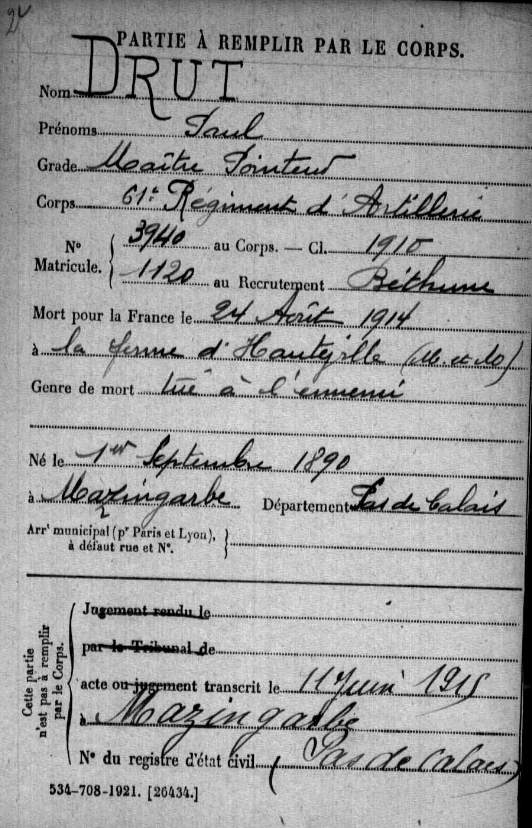 24
PARTIE À REMPLIR PAR LE CORPS.
Nom DRUT
Prénoms Paul
Grade Maître Pointeur
Corps 61e Régiment d'Artillerie
N° Matricule. { 3940 au Corps. — Cl. 1910
1120 au Recrutement Béthune
Mort pour la France le 24 Août 1914
à la ferme d'Hautejille (M. et M)
Genre de mort tué à l'ennemi
Né le 1er Septembre 1890
à Mazingarbe Département Pas de Calais
Arrt municipal (pr Paris et Lyon), à défaut rue et N°. }
Cette partie n'est pas à remplir par le Corps.
Jugement rendu le
par le Tribunal de
acte ou jugement transcrit le 11 Juin 1915
à Mazingarbe
N° du registre d'état civil (Pas de Calais)
534-708-1921. [26434.]